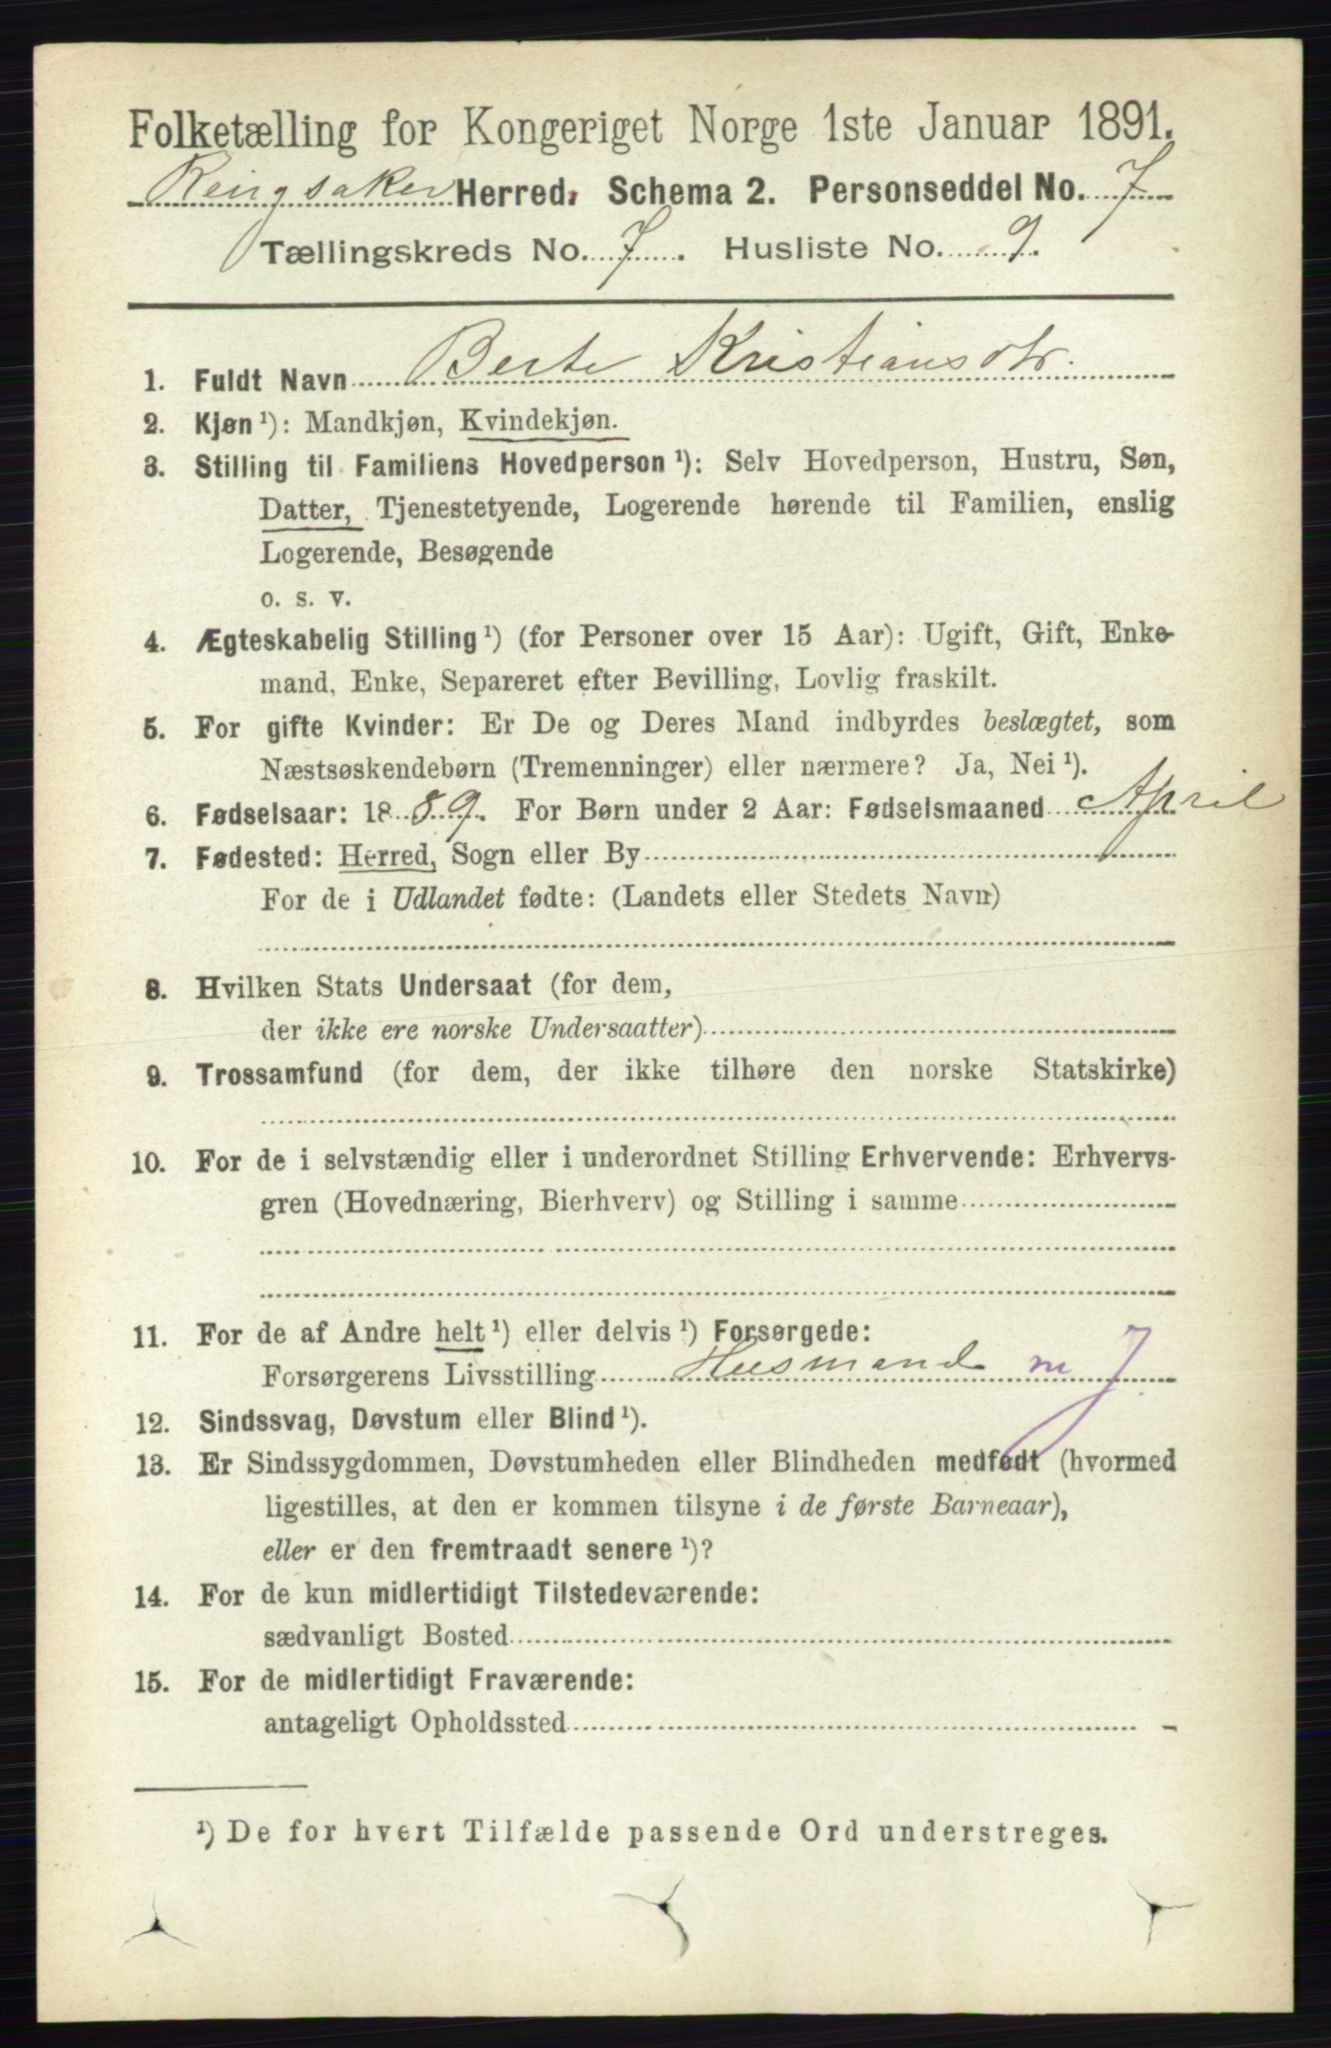 Folketælling for Kongeriget Norge 1ste Januar 1891.
Ringsaker Herred. Schema 2. Personseddel No. 7
Tællingskreds No. 7. Husliste No. 9.
1. Fuldt Navn Berte Kristiansdtr.
2. Kjøn ¹): Mandkjøn, Kvindekjøn.
3. Stilling til Familiens Hovedperson ¹): Selv Hovedperson, Hustru, Søn,
Datter, Tjenestetyende, Logerende hørende til Familien, enslig
Logerende, Besøgende
o. s. v.
4. Ægteskabelig Stilling ¹) (for Personer over 15 Aar): Ugift, Gift, Enke-
mand, Enke, Separeret efter Bevilling, Lovlig fraskilt.
5. For gifte Kvinder: Er De og Deres Mand indbyrdes beslægtet, som
Næstsøskendebørn (Tremenninger) eller nærmere? Ja, Nei ¹).
6. Fødselsaar: 1889. For Børn under 2 Aar: Fødselsmaaned April
7. Fødested: Herred, Sogn eller By
For de i Udlandet fødte: (Landets eller Stedets Navn)
8. Hvilken Stats Undersaat (for dem,
der ikke ere norske Undersaatter)
9. Trossamfund (for dem, der ikke tilhøre den norske Statskirke)
10. For de i selvstændig eller i underordnet Stilling Erhvervende: Erhvervs-
gren (Hovednæring, Bierhverv) og Stilling i samme
11. For de af Andre helt ¹) eller delvis ¹) Forsørgede:
Forsørgerens Livsstilling Husmand m J.
12. Sindssvag, Døvstum eller Blind ¹).
13. Er Sindssygdommen, Døvstumheden eller Blindheden medfødt (hvormed
ligestilles, at den er kommen tilsyne i de første Barneaar),
eller er den fremtraadt senere ¹)?
14. For de kun midlertidigt Tilstedeværende:
sædvanligt Bosted
15. For de midlertidigt Fraværende:
antageligt Opholdssted
¹) De for hvert Tilfælde passende Ord understreges.